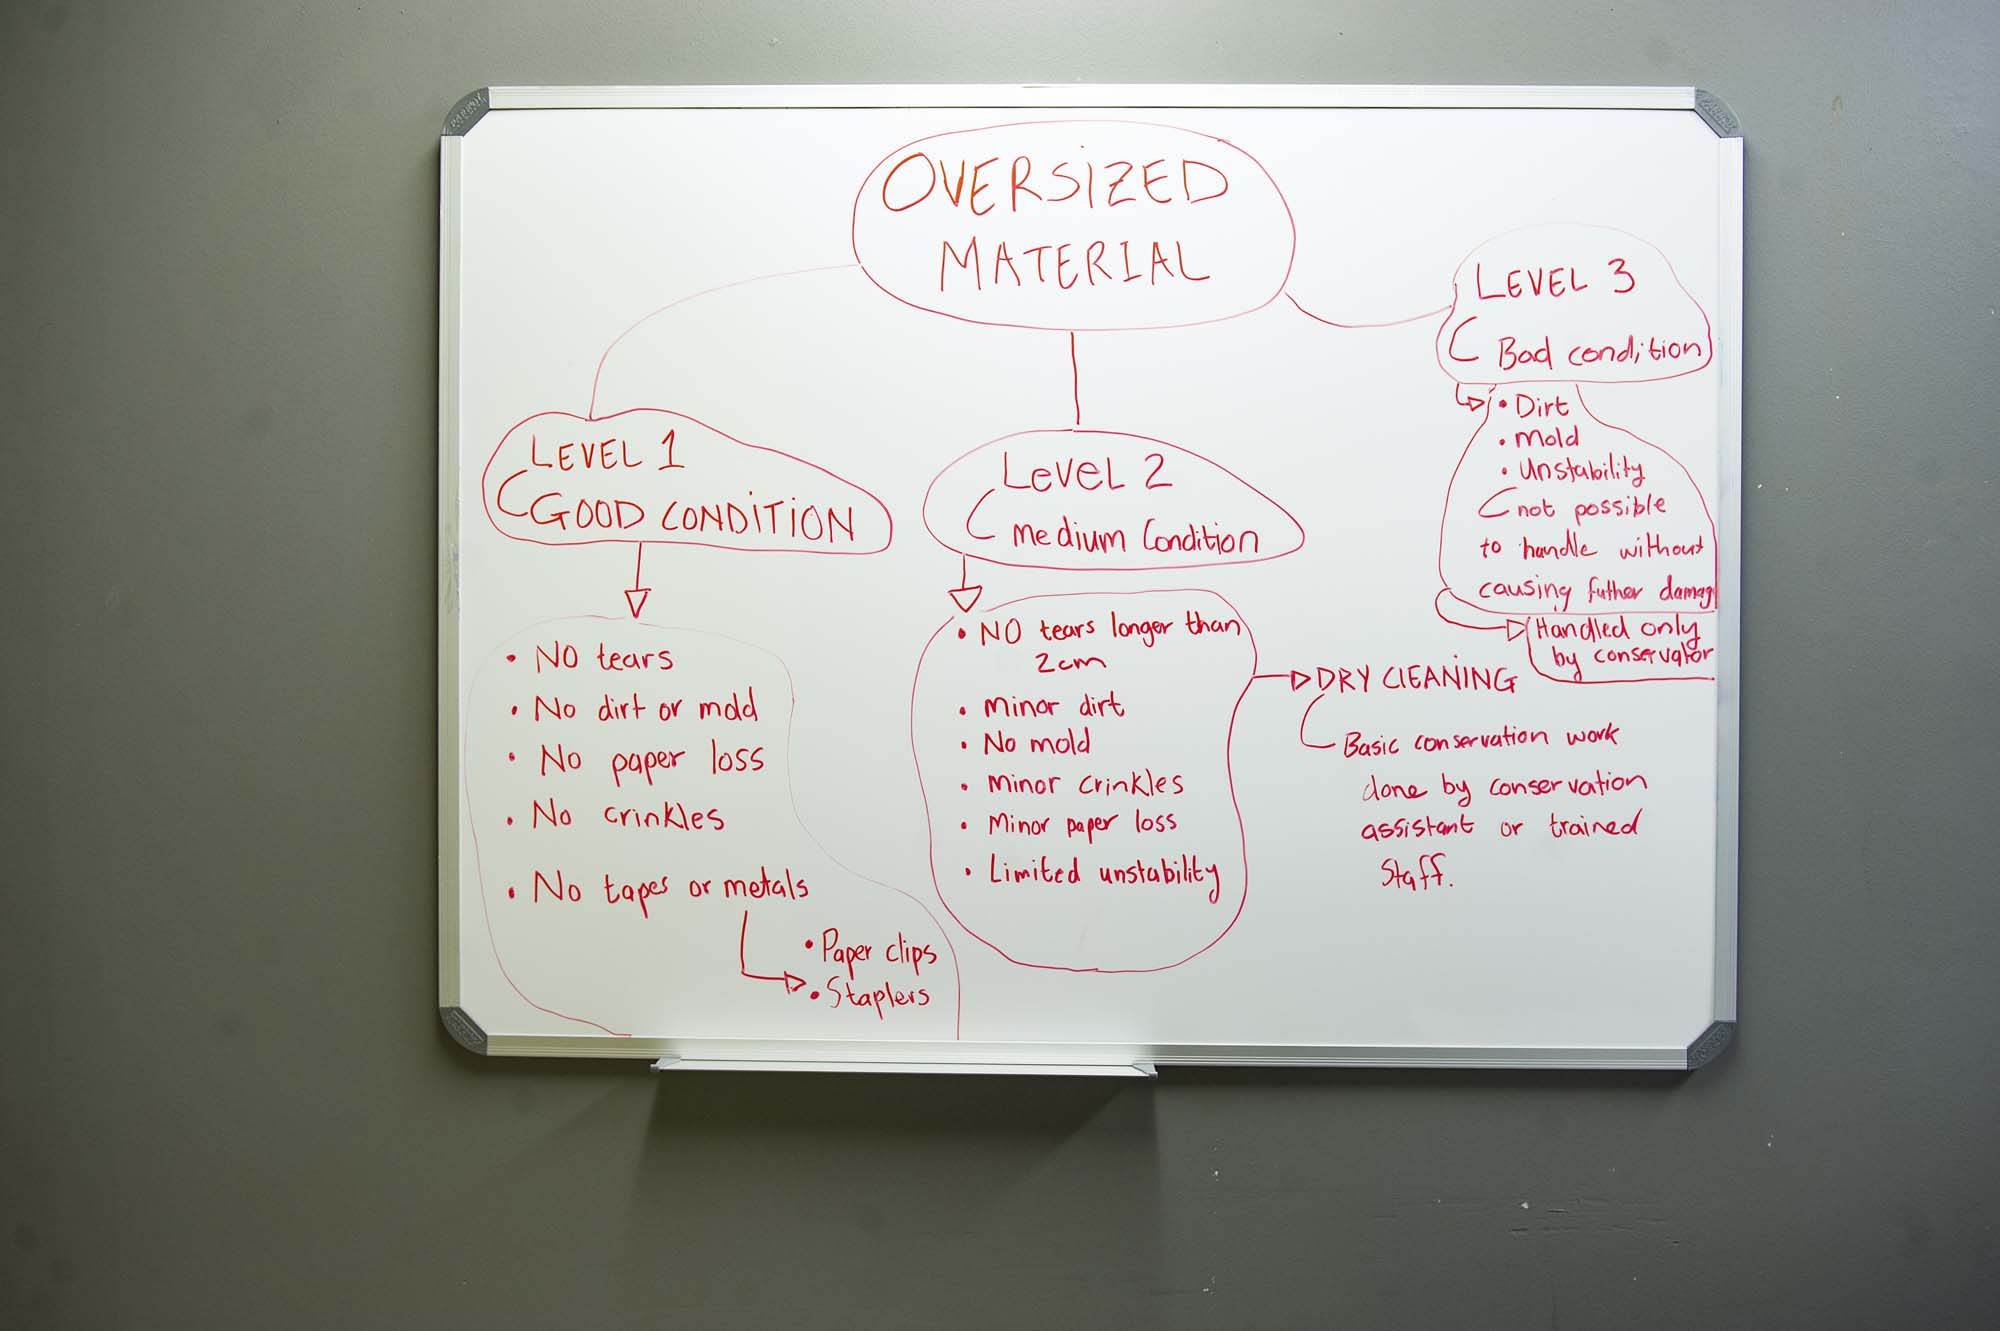 OVERSIZED
MATERIAL
LEVEL 1
GOOD CONDITION
• NO tears
• No dirt or mold
• No paper loss
• No crinkles
• No tapes or metals
• Paper clips
• Staplers
Level 2
medium Condition
• NO tears longer than
2cm
• Minor dirt
• No mold
• Minor crinkles
• Minor paper loss
• Limited unstability
DRY CLEANING
Basic conservation work
done by conservation
assistant or trained
staff.
LEVEL 3
Bad condition
• Dirt
• Mold
• Unstability
not possible
to handle without
causing futher damag
Handled only
by conservator